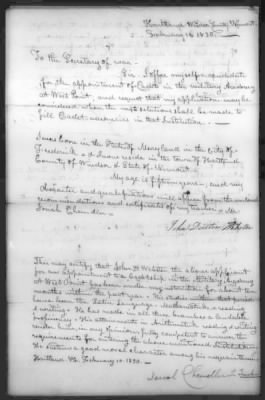 Hartland Windsor County, Vermont.
February 10 1838.
To the Secretary of war.
Sir. I offer myself a candidate
for the appointment of Cadet in the military Academy
at West Point, and request that my application may be
considered when the next selections shall be made to
fill Cadet vacancies in that Institution.
I was born in the State of in the City of
Frederick & now reside in the town of Hartland
County of Windsor & State of Vermont.
My age is fifteen years, and my
character and qualifications will appear from the
recommendations and certificate of my teacher Mr.
Chandler.
John Webster
This may certify that John D. Webster the above applicant
for an appointment to a Cadetship in the Military Academy
at West Point has been under my instruction
months within the past year. His studies within that period
have been the Latin language, Arithmetic, reading
& writing. He has made in all these branches a laudable
proficiency. His attainments in Arithmetic, reading & writing
render him, in my opinion, fully competent to answer the
requirements for entering the above mentioned Institution.
He sustains a good moral character among his acquaintances.
Hartland Vt. February 10. 1838.
Chandler